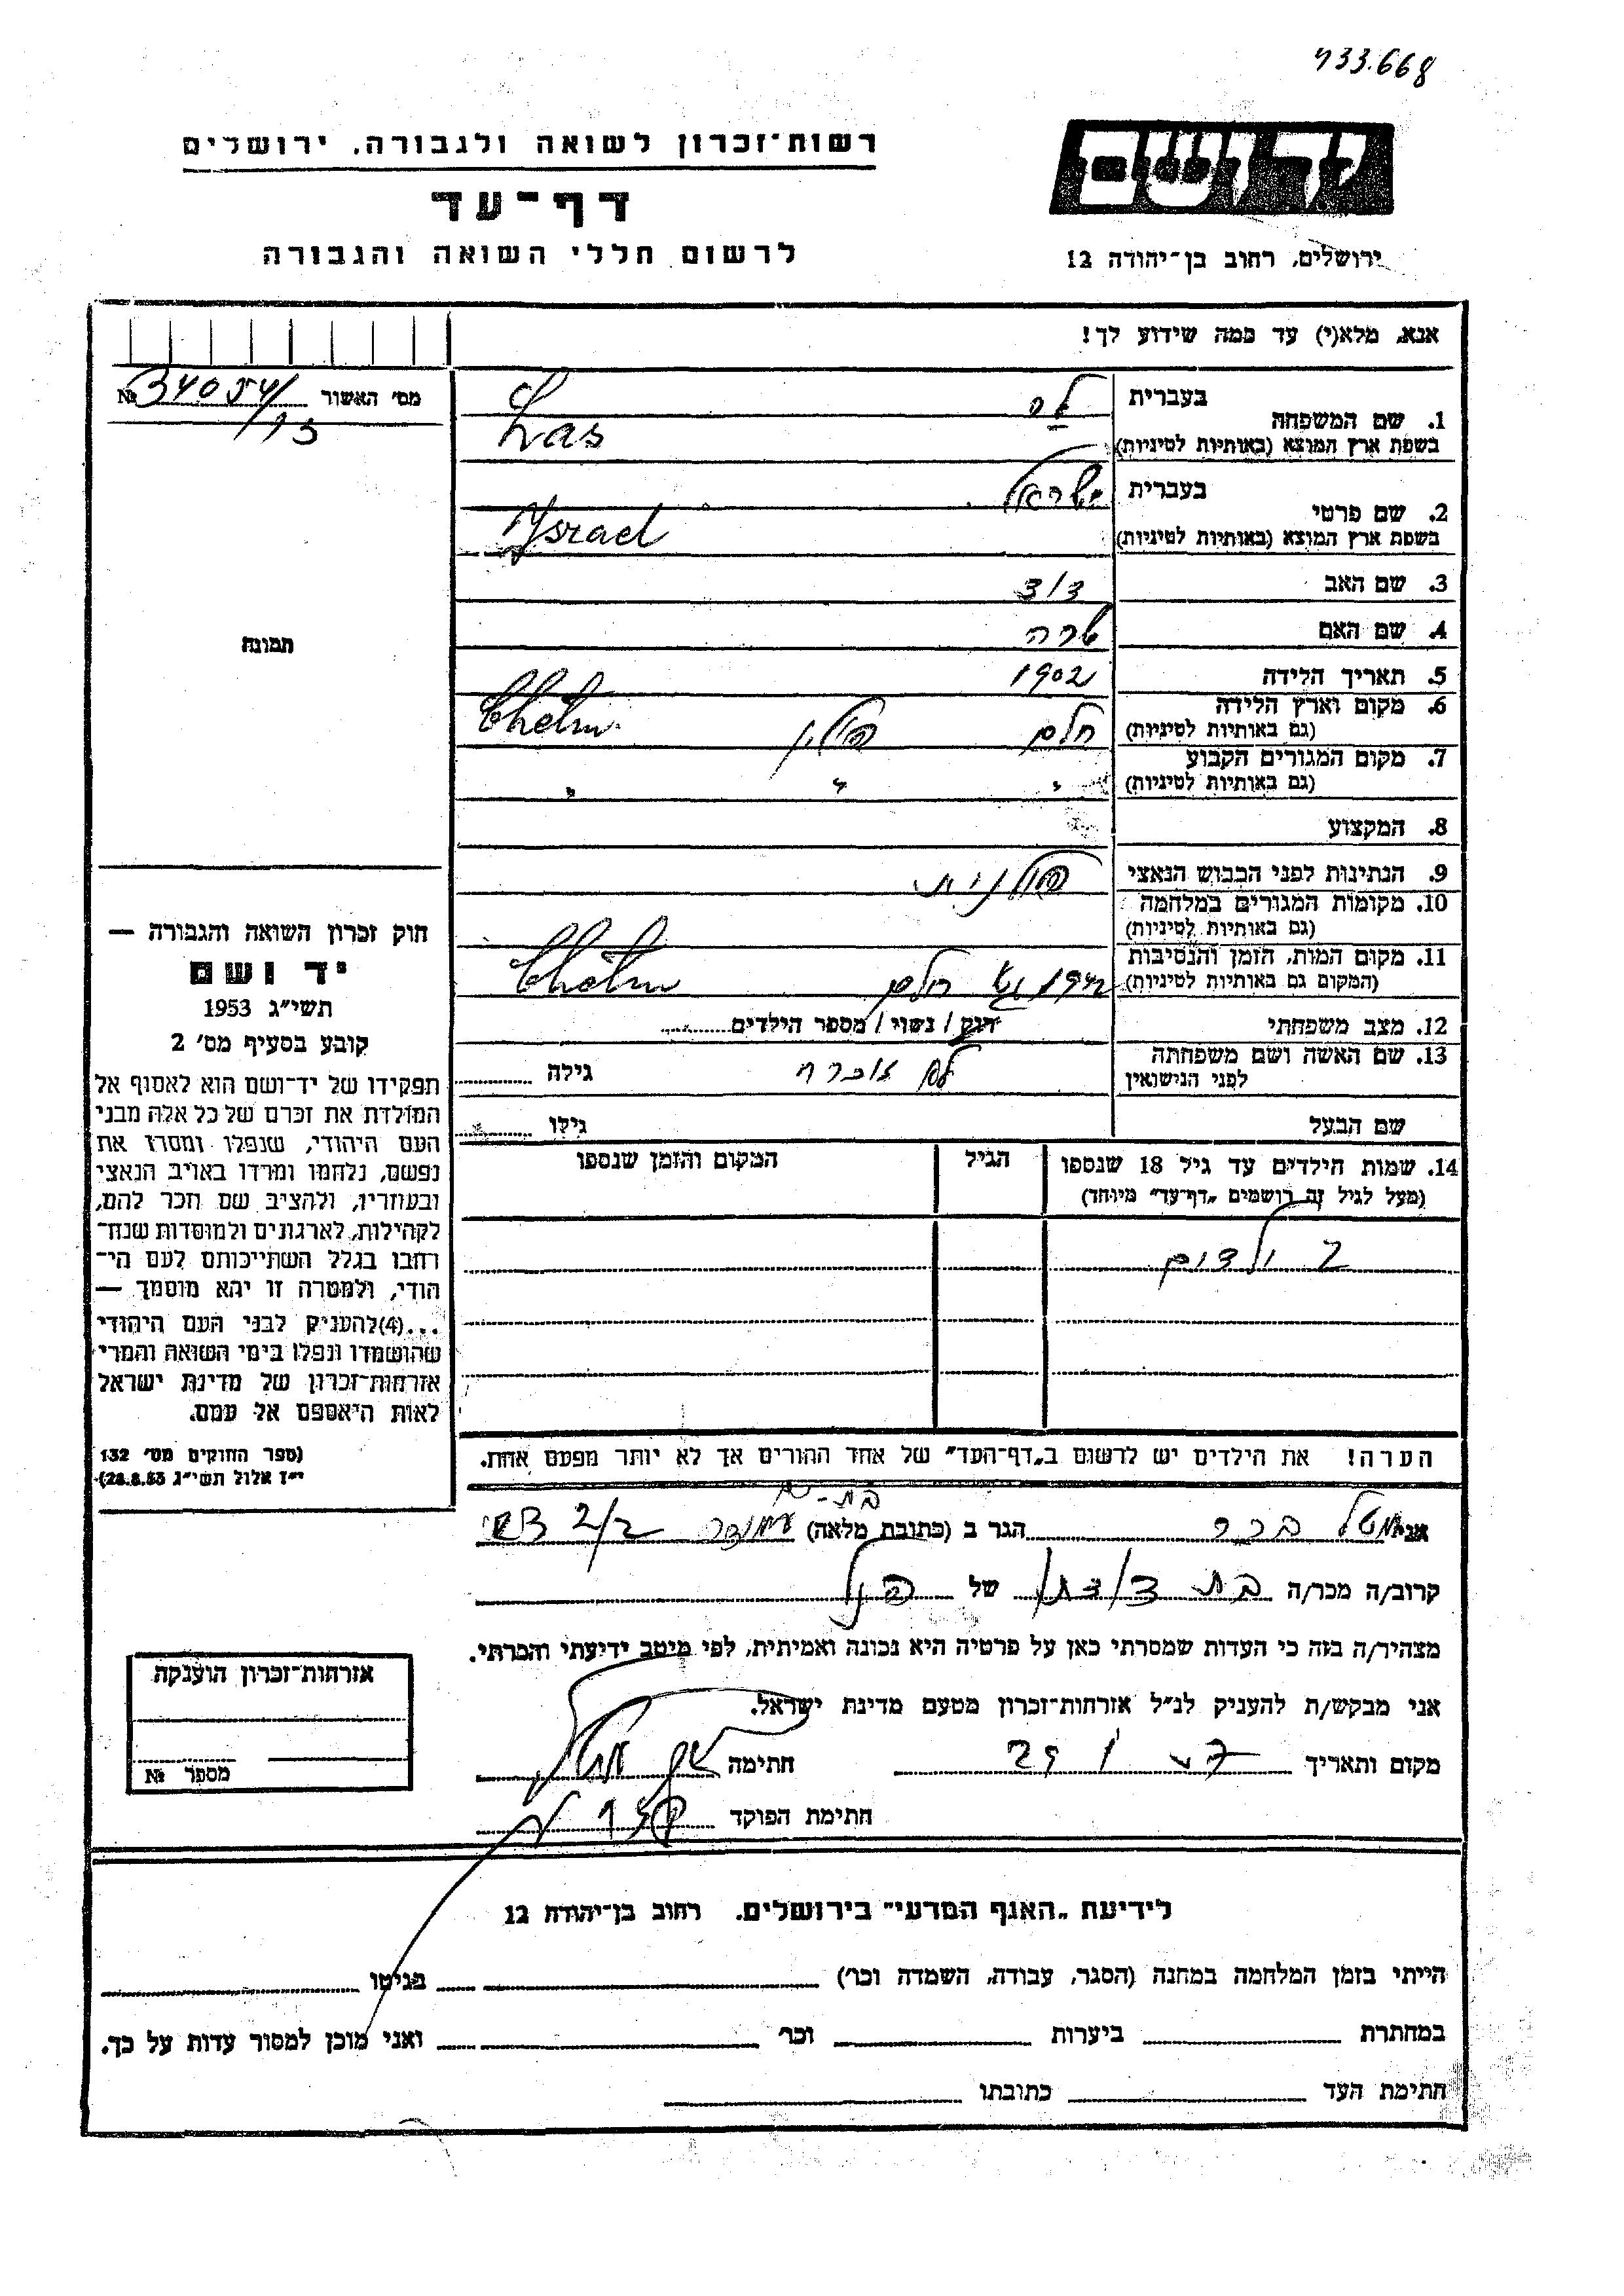 433.668
יד ושם
ירושלים, רחוב בן־יהודה 12
רשות־זכרון לשואה ולגבורה, ירושלים
דף־עד
לרשום חללי השואה והגבורה
אנא, מלא(י) עד כמה שידוע לך!
מס' האשור № 34054/
בעברית
1. שם המשפחה
בשפת ארץ המוצא (באותיות לטיניות) Las
בעברית ישראל
2. שם פרטי
בשפת ארץ המוצא (באותיות לטיניות) Ysrael
3. שם האב
4. שם האם שרה
5. תאריך הלידה 1902
6. מקום וארץ הלידה חלם פולין Chelm
(גם באותיות לטיניות)
7. מקום המגורים הקבוע " " "
(גם באותיות לטיניות)
8. המקצוע
9. הנתינות לפני הכבוש הנאצי פולנית
10. מקומות המגורים במלחמה
(גם באותיות לטיניות)
11. מקום המות, הזמן והנסיבות 1942 חלם Chelm
(המקום גם באותיות לטיניות)
12. מצב משפחתי רווק / נשוי / מספר הילדים
13. שם האשה ושם משפחתה גילה
לפני הנישואין
שם הבעל גילו
14. שמות הילדים עד גיל 18 שנספו הגיל המקום והזמן שנספו
(מעל לגיל זה רושמים "דף־עד" מיוחד)
2 ילדים
הערה! את הילדים יש לרשום ב"דף־העד" של אחד ההורים אך לא יותר מפעם אחת.
תמונה
חוק זכרון השואה והגבורה —
יד ושם
תשי"ג 1953
קובע בסעיף מס' 2
תפקידו של יד־ושם הוא לאסוף אל
המולדת את זכרם של כל אלה מבני
העם היהודי, שנפלו ומסרו את
נפשם, נלחמו ומרדו באויב הנאצי
ובעוזריו, ולהציב שם וזכר להם,
לקהילות, לארגונים ולמוסדות שנח־
רבו בגלל השתייכותם לעם הי־
הודי, ולמטרה זו יהא מוסמך —
...(4) להעניק לבני העם היהודי
שהושמדו ונפלו בימי השואה והמרי
אזרחות־זכרון של מדינת ישראל
לאות היאספם אל עמם.
(ספר החוקים מס' 132
י"ז אלול תשי"ג 28.8.53)
בת-ים
אני הגר ב (כתובת מלאה) 2/2
קרוב/ה מכר/ה בת דודתו של הנ"ל
מצהיר/ה בזה כי העדות שמסרתי כאן על פרטיה היא נכונה ואמיתית, לפי מיטב ידיעתי והכרתי.
אני מבקש/ת להעניק לנ"ל אזרחות־זכרון מטעם מדינת ישראל.
מקום ותאריך חתימה
חתימת הפוקד
אזרחות־זכרון הוענקה
מספר №
לידיעת "האגף המדעי" בירושלים, רחוב בן־יהודה 12
הייתי בזמן המלחמה במחנה (הסגר, עבודה, השמדה וכו') בגיטו
במחתרת ביערות וכו' ואני מוכן למסור עדות על כך.
חתימת העד כתובתו